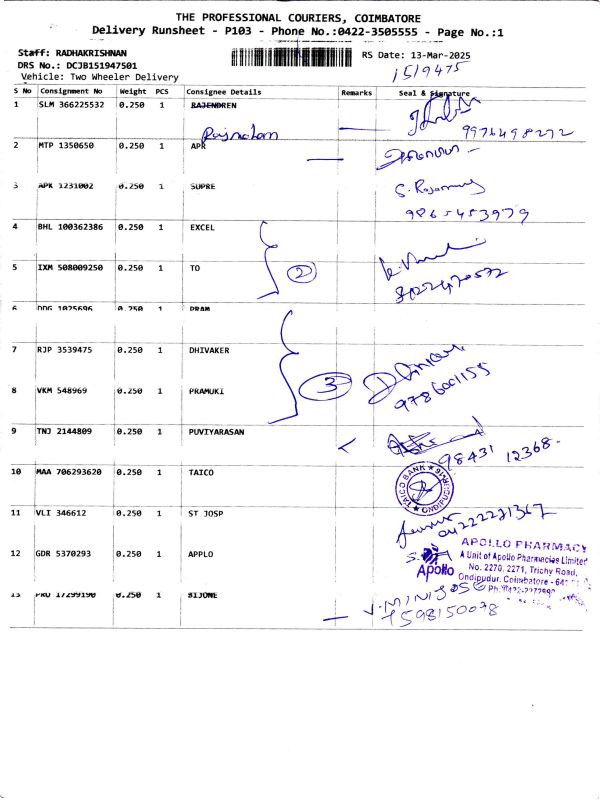 THE PROFESSIONAL COURIERS, COIMBATORE
Delivery Runsheet - P103 - Phone No.:0422-3505555 - Page No.:1
Staff: RADHAKRISHNAN
DRS No.: DCJB151947501
Vehicle: Two Wheeler Delivery
RS Date: 13-Mar-2025
1519475
S No Consignment No Weight PCS Consignee Details Remarks Seal & Signature
1 SLM 366225532 0.250 1 RAJENDREN
9976498272
2 MTP 1350650 0.250 1 APR
3 APK 1231002 0.250 1 SUPRE
9865453979
4 BHL 100362386 0.250 1 EXCEL
2
5 IXM 508009250 0.250 1 TO
6 DDG 1025696 0.250 1 PRAM
7 RJP 3539475 0.250 1 DHIVAKER
3
8 VKM 548969 0.250 1 PRAMUKI
9 TNJ 2144809 0.250 1 PUVIYARASAN
98431 12368
10 MAA 706293620 0.250 1 TAICO
TAICO BANK
11 VLI 346612 0.250 1 ST JOSP
12 GDR 5370293 0.250 1 APPLO
APOLLO PHARMACY
A Unit of Apollo Pharmacies Limited
No. 2270, 2271, Trichy Road,
Ondipudur, Coimbatore - 641
Apollo
13 PRO 17299190 0.250 1 BIJONE
V.MINIJOSE
7598150078